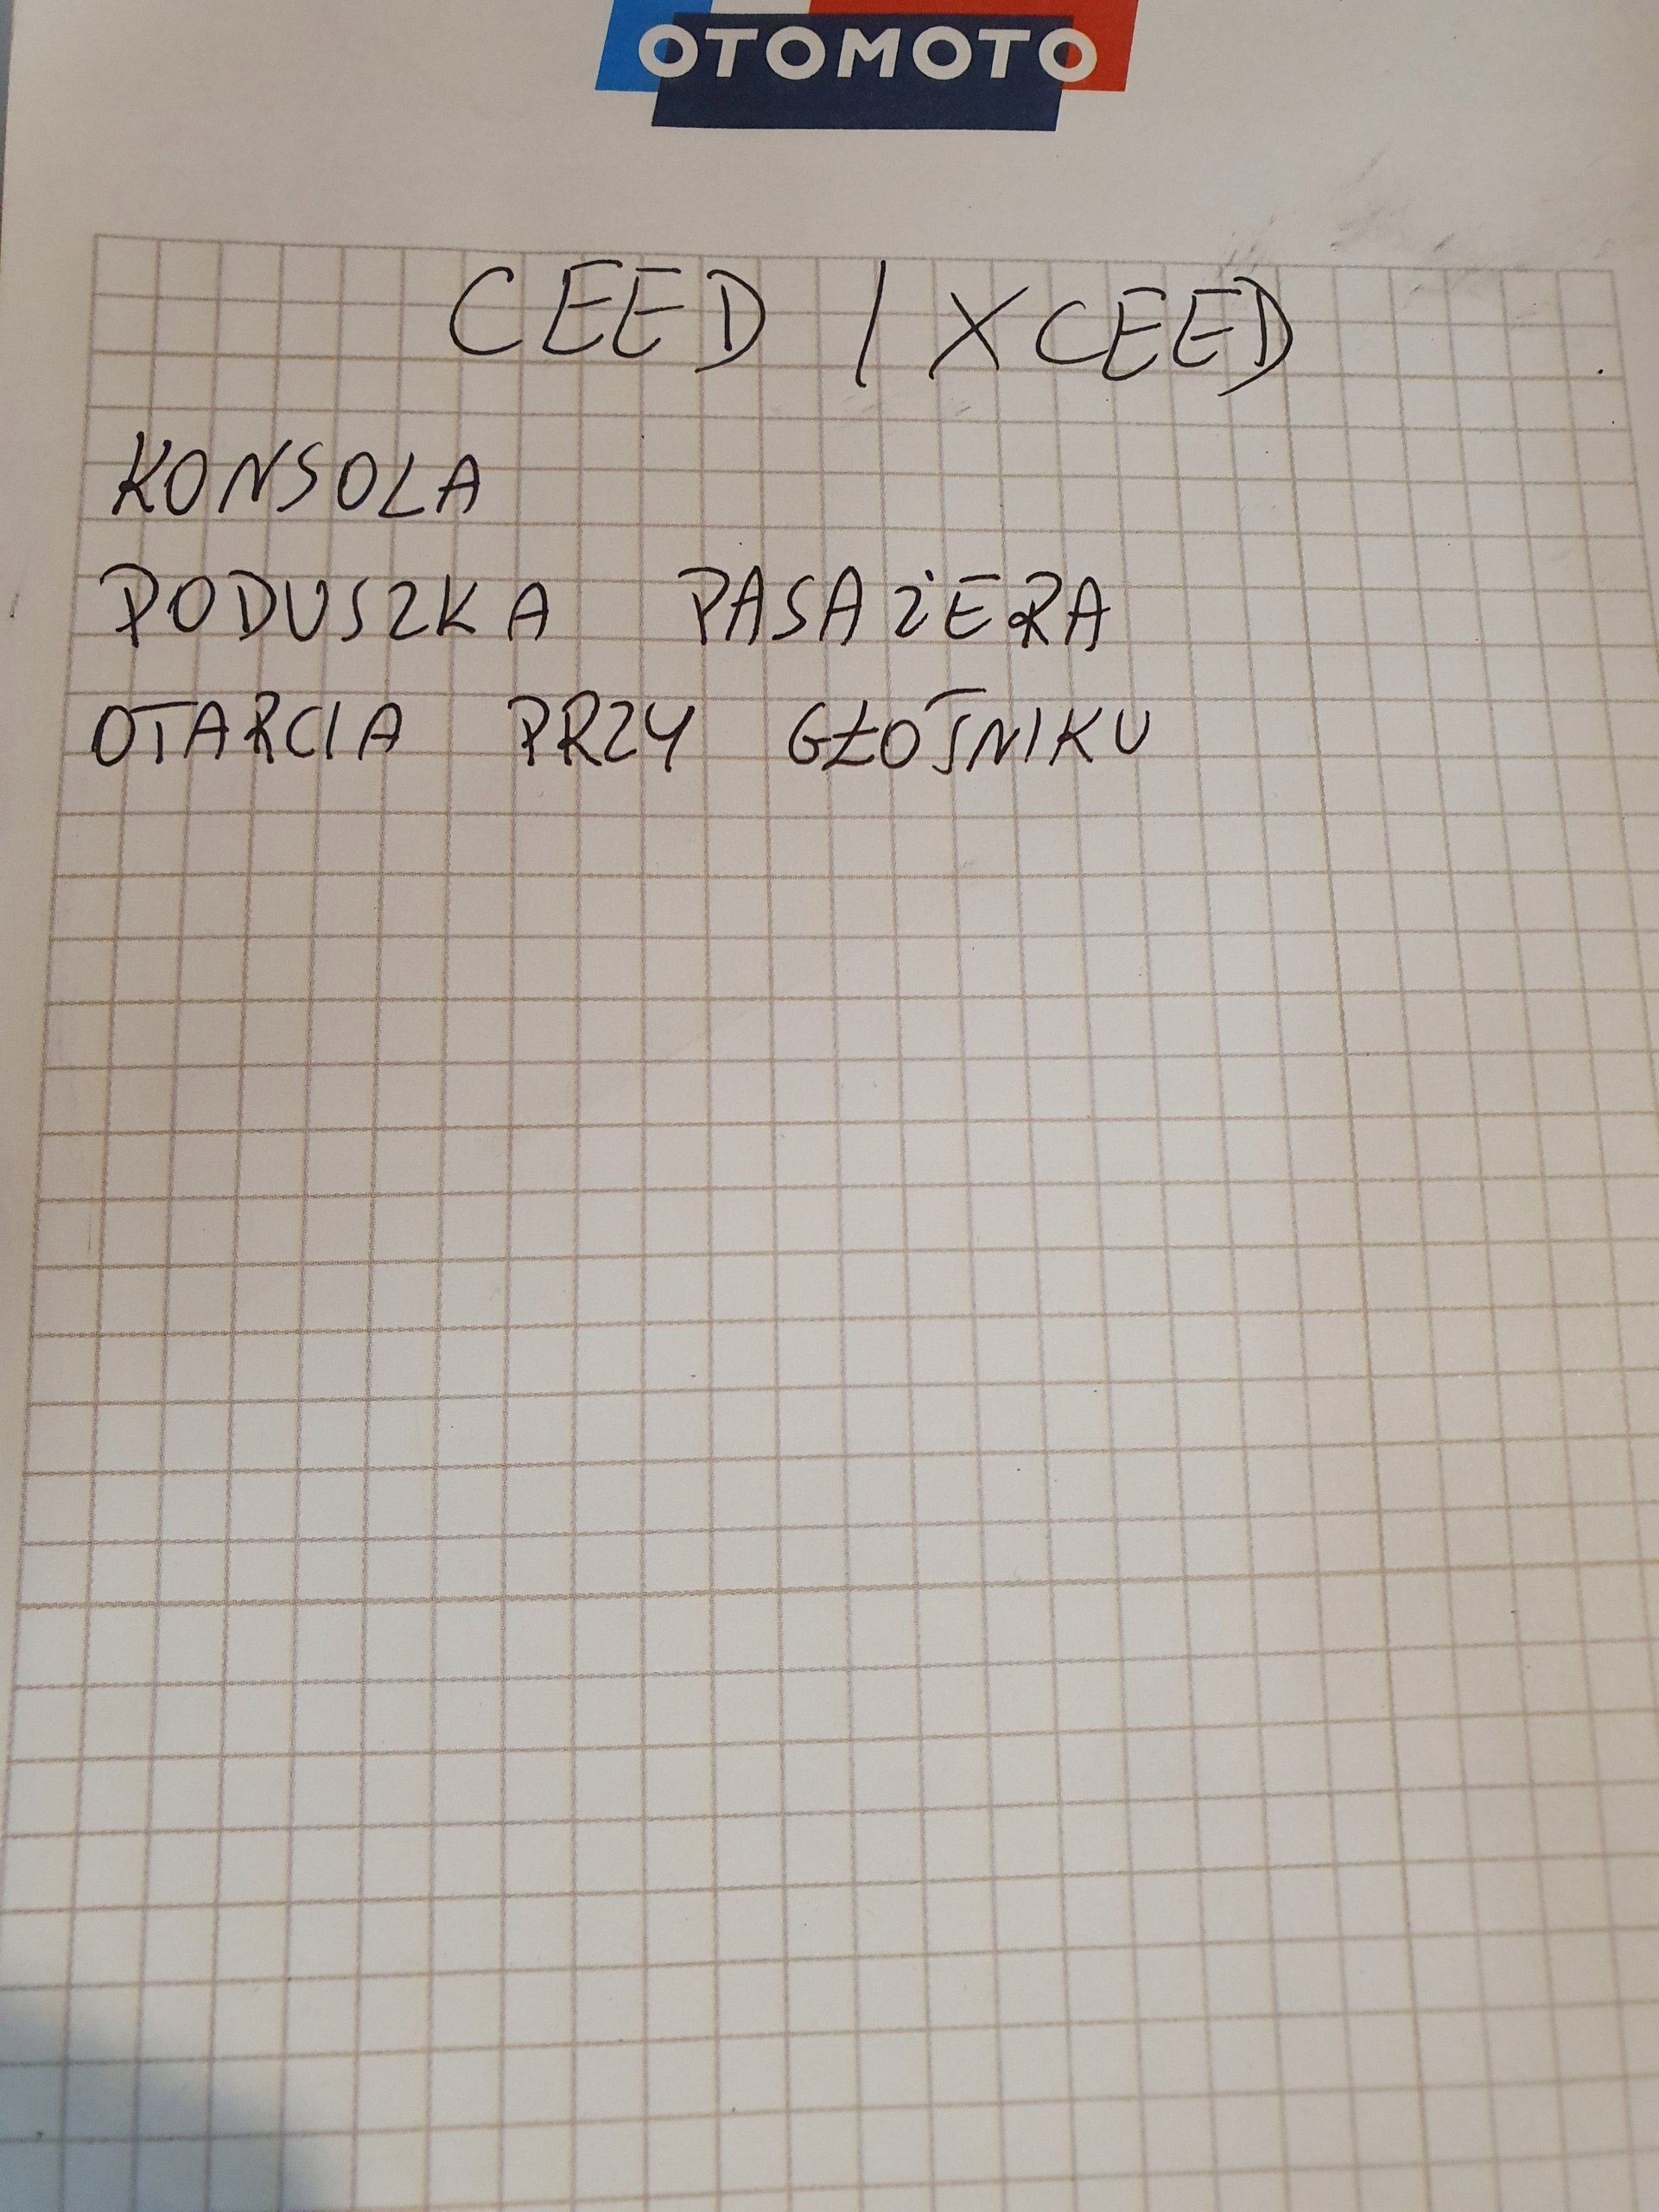 OTOMOTO
CEED / XCEED
KONSOLA
PODUSZKA PASAŻERA
OTARCIA PRZY GŁOŚNIKU